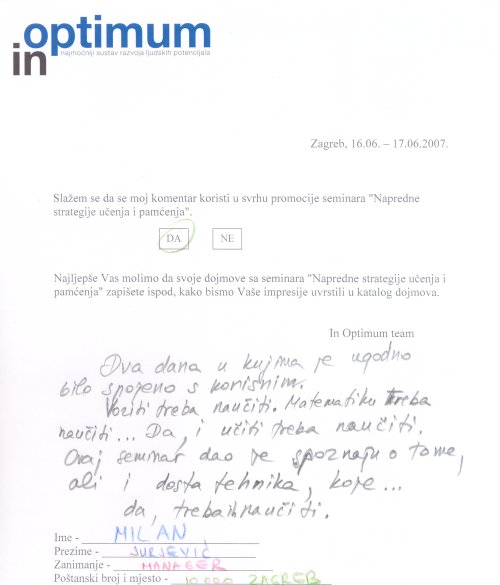 optimum
in
najmoćniji sustav razvoja ljudskih potencijala
Zagreb, 16.06. – 17.06.2007.
Slažem se da se moj komentar koristi u svrhu promocije seminara "Napredne
strategije učenja i pamćenja".
DA NE
Najljepše Vas molimo da svoje dojmove sa seminara "Napredne strategije učenja i
pamćenja" zapišete ispod, kako bismo Vaše impresije uvrstili u katalog dojmova.
In Optimum team
Dva dana u kojima je ugodno
bilo spojeno s korisnim.
Voziti treba naučiti. Matematiku treba
naučiti... Da, i učiti treba naučiti.
Ovaj seminar dao je spoznaju o tome,
ali i dosta tehnika, koje...
da, treba naučiti.
Ime - MILAN
Prezime - JURJEVIĆ
Zanimanje - MANAGER
Poštanski broj i mjesto - 10.000 ZAGREB